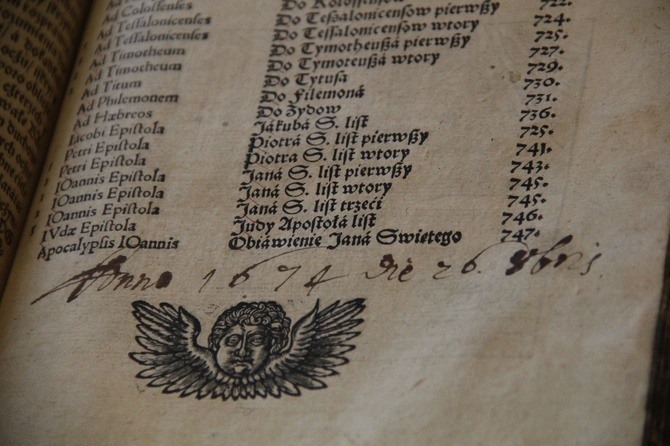 Ad Colossenses Do Kolossensow 722.
Ad Tessalonicenses Do Tessalonicensow pierwßy 724.
Ad Tessalonicenses Do Tessalonicensow wtory 725.
Ad Timotheum Do Tymotheußá pierwßy 727.
Ad Timotheum Do Tymoteußá wtory 729.
Ad Titum Do Tytusá 730.
Ad Philemonem Do Filemoná 731.
Ad Hæbreos Do Żydow 736.
Iacobi Epistola Jákubá S. list 725.
Petri Epistola Piotrá S. list pierwßy 741.
Petri Epistola Piotrá S. list wtory 743.
IOannis Epistola Janá S. list pierwßy 745.
IOannis Epistola Janá S. list wtory 745.
IOannis Epistola Janá S. list trzeci 746.
IVdæ Epistola Judy Apostołá list 747.
Apocalypsis IOannis Obiáwienie Janá Swietego
Anno 1674 die 26. 8bris.